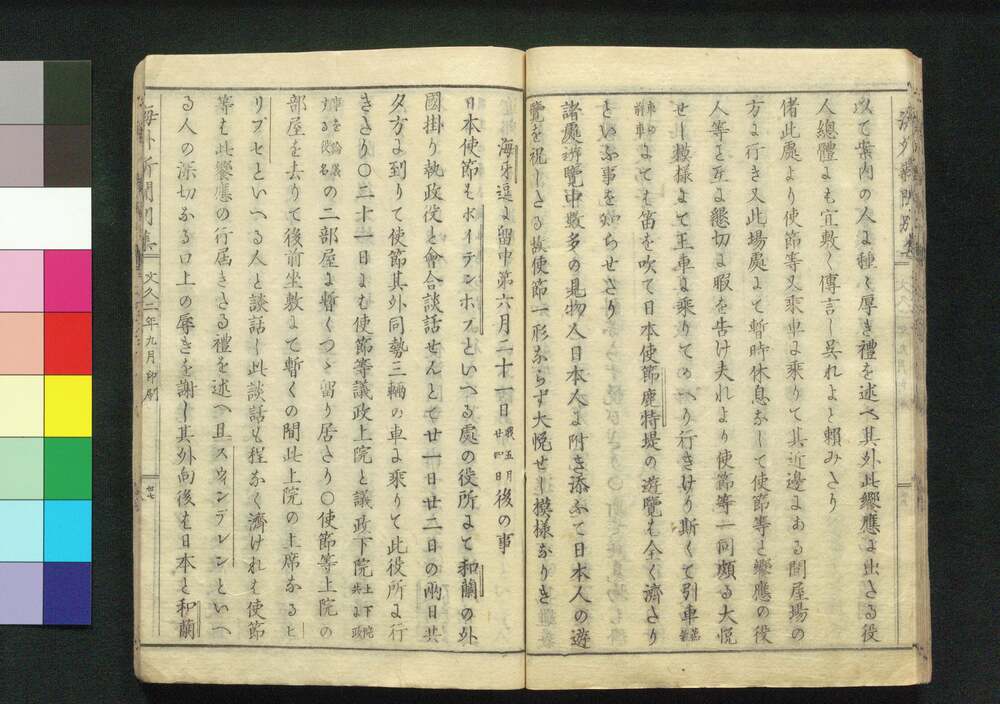 以て案内の人よ種〻厚き禮を述べ其外此饗應よ出さる役
人總體よも宜敷く傳言し呉れよと頼みさり
偖此處より使節等又乘車よ乘りて其近邊よある問屋場の
方よ行き又此場處よて暫時休息なして使節等と饗應の役
人等と互よ懇切よ暇を告け夫れより使節等一同頗る大悦
せし模様よて王車よ乘りてのへり行きけり斯くて引車
よても笛を吹て日本使節鹿特堤の遊覽も全く濟さり
といふ事を知らせさり
諸處遊覽中數多の見物人日本人よ附き添ふて日本人の遊
覽を祝しさる故使節一形ならず大悦せし模様なりき
海牙逗留中第六月二十一日我五月廿四日後の事
日本使節もボイテンホフといへる處の役所よて和蘭の外
國掛り執政役と會合談話せんとて廿一日廿二日の兩日共
夕方よ到りて使節其外同勢三輛の車よ乘りて此役所よ行
きさり〇二十一日よも使節等議政上院と議政下院上下院共よ政
事を論議する役名の二部屋よ暫くつゝ留り居さり〇使節等上院の
部屋を去りて後前坐敷よて暫くの間此上院の上席なるヒ
リプセといへる人と談話し此談話も程なく濟けれも使節
等も此饗應の行届きさる禮を述へ且スウィンデレンといへ
る人の深切なる口上の辱きを謝し其外向後も日本と和蘭
海外新聞別集
文久二年九月印刷
廿七